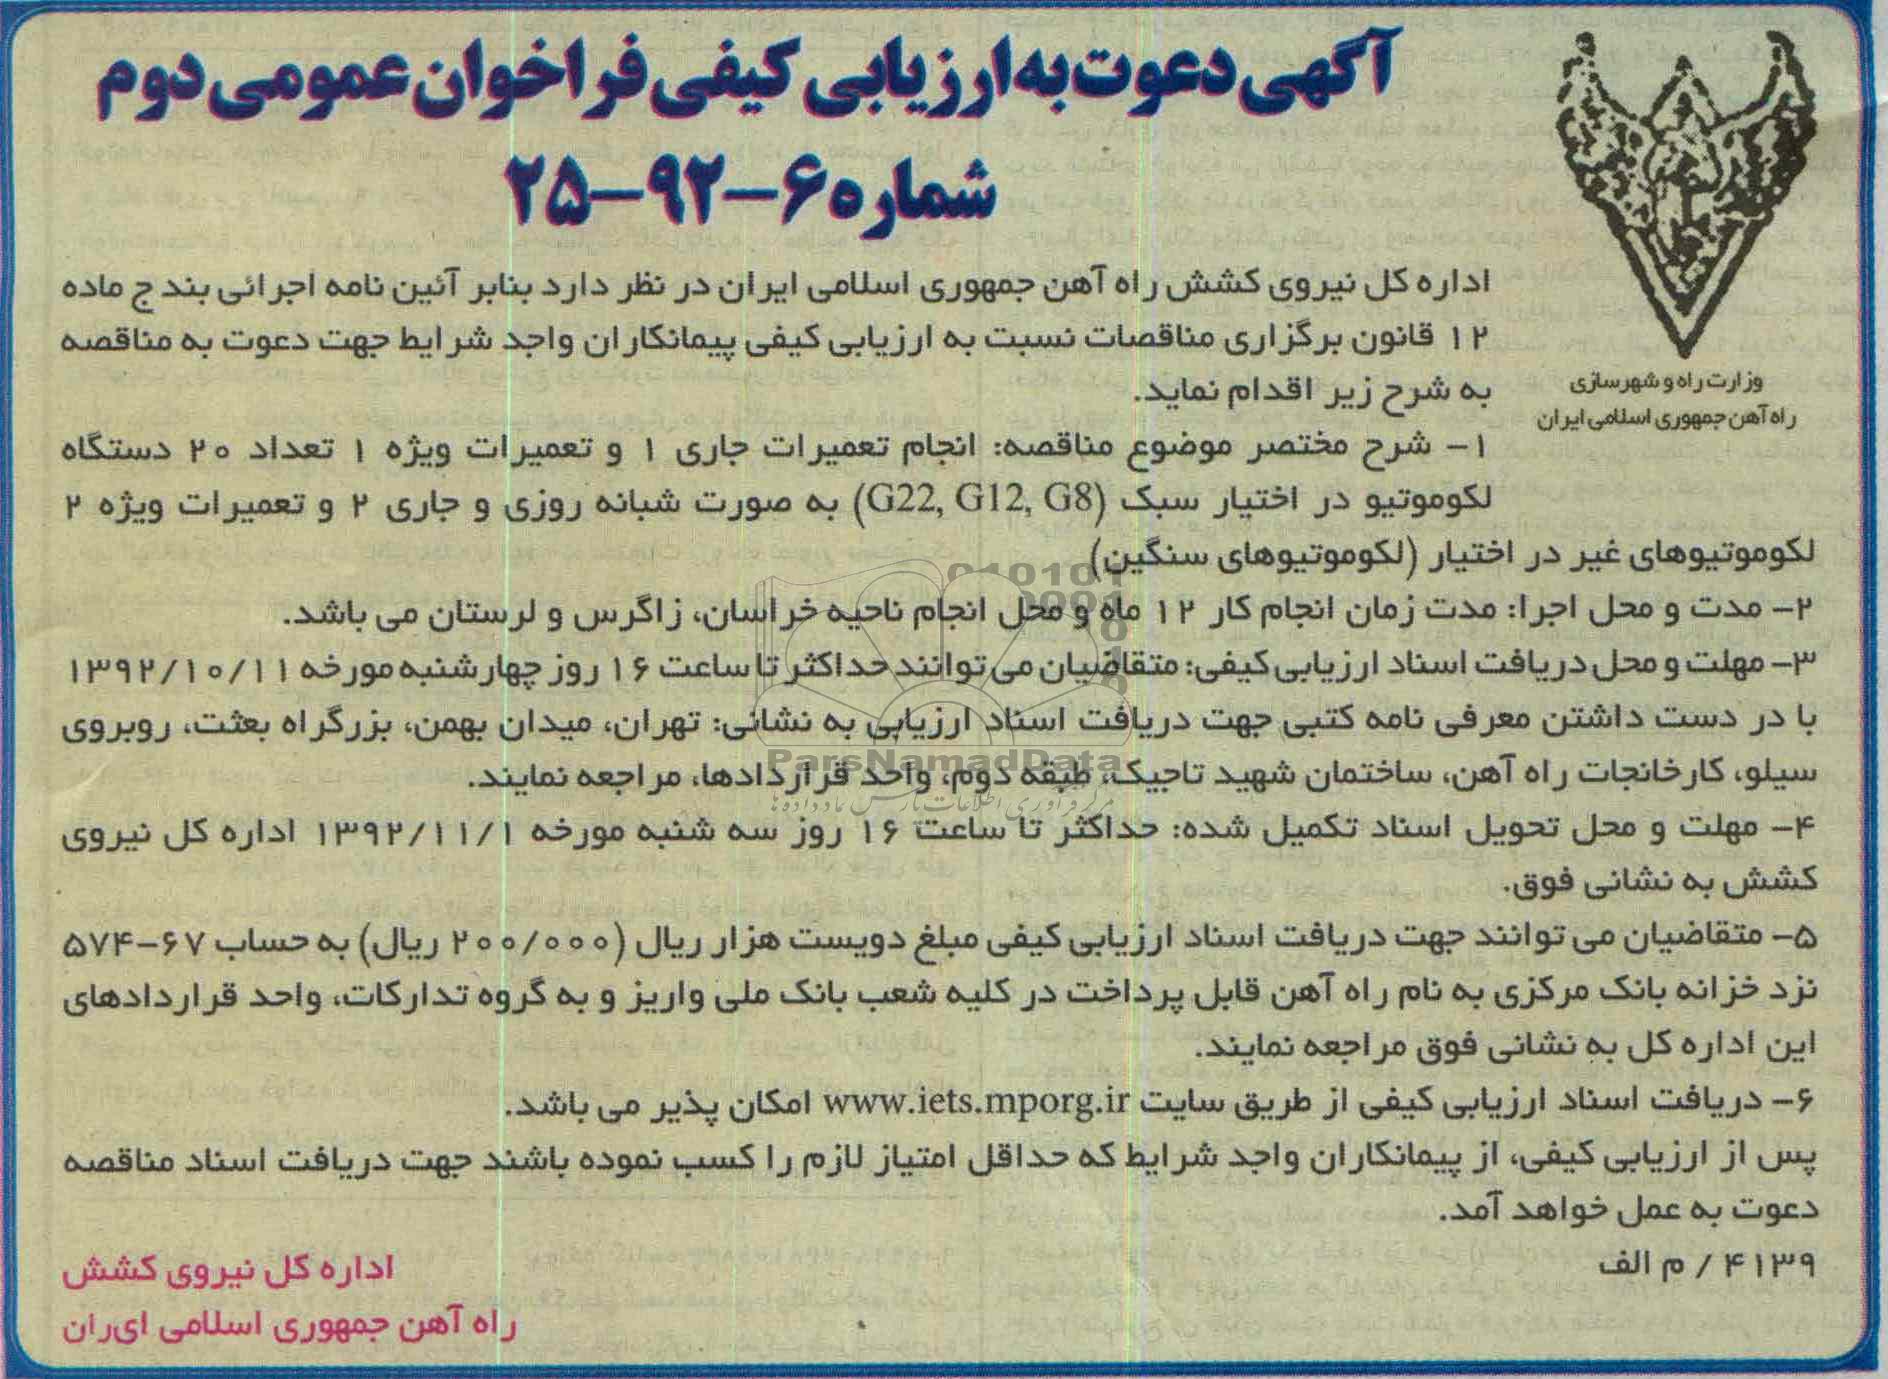 آگهی دعوت به ارزیابی کیفی فراخوان عمومی دوم
شماره ۶-۹۲-۲۵
وزارت راه و شهرسازی
راه آهن جمهوری اسلامی ایران
اداره کل نیروی کشش راه آهن جمهوری اسلامی ایران در نظر دارد بنابر آئین نامه اجرائی بند ج ماده
۱۲ قانون برگزاری مناقصات نسبت به ارزیابی کیفی پیمانکاران واجد شرایط جهت دعوت به مناقصه
به شرح زیر اقدام نماید.
۱- شرح مختصر موضوع مناقصه: انجام تعمیرات جاری ۱ و تعمیرات ویژه ۱ تعداد ۲۰ دستگاه
لکوموتیو در اختیار سبک (G22, G12, G8) به صورت شبانه روزی و جاری ۲ و تعمیرات ویژه ۲
لکوموتیوهای غیر در اختیار (لکوموتیوهای سنگین)
۲- مدت و محل اجرا: مدت زمان انجام کار ۱۲ ماه و محل انجام ناحیه خراسان، زاگرس و لرستان می باشد.
۳- مهلت و محل دریافت اسناد ارزیابی کیفی: متقاضیان می توانند حداکثر تا ساعت ۱۶ روز چهارشنبه مورخه ۱۳۹۲/۱۰/۱۱
با در دست داشتن معرفی نامه کتبی جهت دریافت اسناد ارزیابی به نشانی: تهران، میدان بهمن، بزرگراه بعثت، روبروی
سیلو، کارخانجات راه آهن، ساختمان شهید تاجیک، طبقه دوم، واحد قراردادها، مراجعه نمایند.
۴- مهلت و محل تحویل اسناد تکمیل شده: حداکثر تا ساعت ۱۶ روز سه شنبه مورخه ۱۳۹۲/۱۱/۱ اداره کل نیروی
کشش به نشانی فوق.
۵- متقاضیان می توانند جهت دریافت اسناد ارزیابی کیفی مبلغ دویست هزار ریال (۲۰۰/۰۰۰ ریال) به حساب ۶۷-۵۷۴
نزد خزانه بانک مرکزی به نام راه آهن قابل پرداخت در کلیه شعب بانک ملی واریز و به گروه تدارکات، واحد قراردادهای
این اداره کل به نشانی فوق مراجعه نمایند.
۶- دریافت اسناد ارزیابی کیفی از طریق سایت www.iets.mporg.ir امکان پذیر می باشد.
پس از ارزیابی کیفی، از پیمانکاران واجد شرایط که حداقل امتیاز لازم را کسب نموده باشند جهت دریافت اسناد مناقصه
دعوت به عمل خواهد آمد.
۴۱۳۹ / م الف
اداره کل نیروی کشش
راه آهن جمهوری اسلامی ایران
ParsNamadData
مرکز فرآوری اطلاعات پارس نماد داده ها